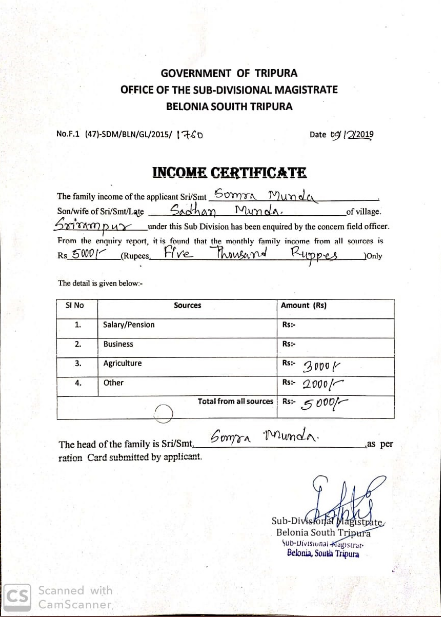 GOVERNMENT OF TRIPURA
OFFICE OF THE SUB-DIVISIONAL MAGISTRATE
BELONIA SOUITH TRIPURA
No.F.1 (47)-SDM/BLN/GL/2015/ 1760 Date 09/12/2019
INCOME CERTIFICATE
The family income of the applicant Sri/Smt Somra Munda
Son/wife of Sri/Smt/Late Sadhan Munda. of village.
Srirampur under this Sub Division has been enquired by the concern field officer.
From the enquiry report, it is found that the monthly family income from all sources is
Rs 5000/- (Rupees, Five Thousand Ruppes )Only
The detail is given below:-
Sl No Sources Amount (Rs)
1. Salary/Pension Rs:-
2. Business Rs:-
3. Agriculture Rs:- 3000/-
4. Other Rs:- 2000/-
Total from all sources Rs:- 5000/-
The head of the family is Sri/Smt, Somra Munda. ,as per
ration Card submitted by applicant.
Sub-Divisional Magistrate
Belonia South Tripura
Sub-Divisional Magistrate
Belonia, South Tripura
CS Scanned with
CamScanner